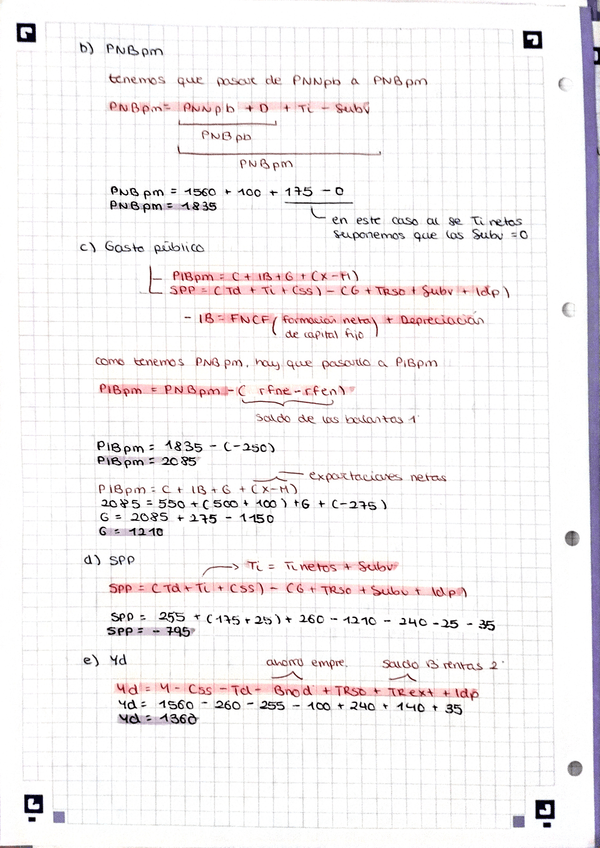 b) PNBpm
tenemos que pasar de PNNpb a PNBpm
PNBpm = PNNpb + D + Ti - Subv
PNBpb
PNBpm
PNBpm = 1560 + 100 + 175 - 0
PNBpm = 1835
en este caso al se Ti netos
suponemos que las Subv = 0
c) Gasto público
PIBpm = C + IB + G + (X-M)
SPP = (Td + Ti + Css) - (G + TRSO + Subv + Idp)
- IB = FNCF (formación neta de capital fijo) + Depreciación
como tenemos PNBpm, hay que pasarlo a PIBpm
PIBpm = PNBpm - ( rfne - rfen)
saldo de las balantas 1ª
PIBpm = 1835 - (-250)
PIBpm = 2085
exportaciones netas
PIBpm = C + IB + G + (X-M)
2085 = 550 + (500 + 100) + G + (-275)
G = 2085 + 275 - 1150
G = 1210
d) SPP
Ti = Ti netos + Subv
SPP = (Td + Ti + Css) - (G + TRSO + Subv + Idp)
SPP = 255 + (175 + 25) + 260 - 1210 - 240 - 25 - 35
SPP = - 795
e) Yd
ahorro empre.
saldo B rentas 2ª
Yd = Y - Css - Td - Bnod + TRSO + TRext + Idp
Yd = 1560 - 260 - 255 - 100 + 240 + 140 + 35
Yd = 1360